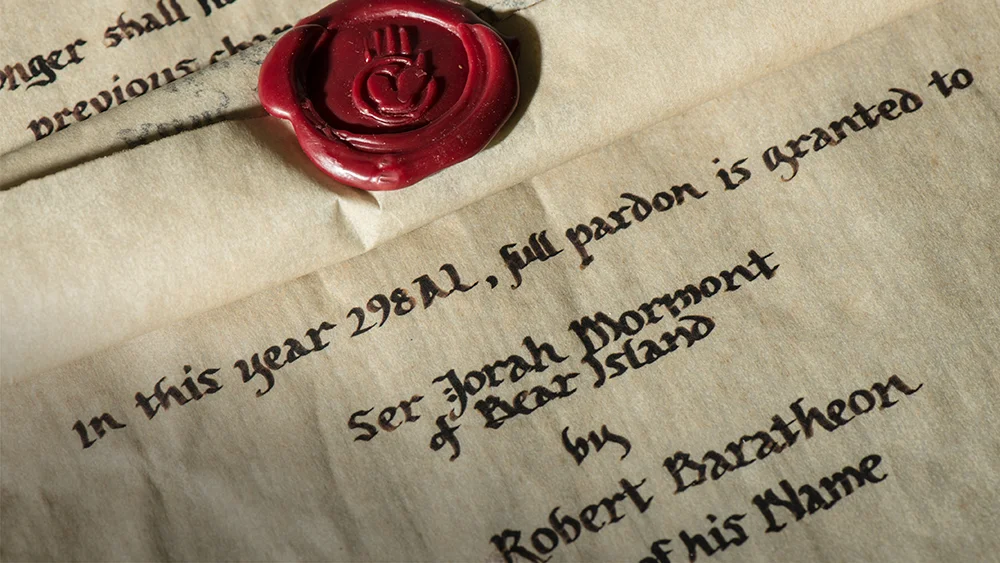 shall
previous
In this year 298AL, full pardon is granted to
Ser Jorah Mormont
of Bear Island
by
Robert Baratheon
of his Name